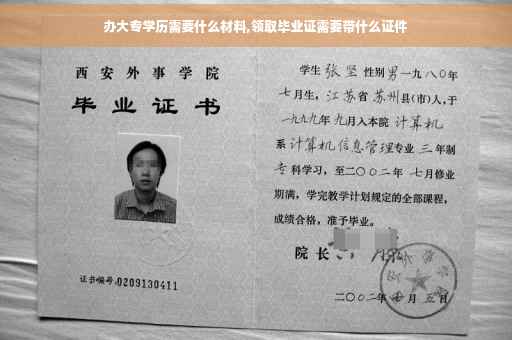 办大专学历需要什么材料,领取毕业证需要带什么证件
西安外事学院
毕业证书
证书编号:0209130411
学生 张坚 性别 男 一九八〇年
七月生, 江苏省 苏州县(市)人,于
一九九九年 九月入本院 计算机
系 计算机信息管理专业 三 年制
专科学习, 至二〇〇二年 七月修业
期满, 学完教学计划规定的全部课程,
成绩合格, 准予毕业。
院 长
二〇〇二年 月 五 日